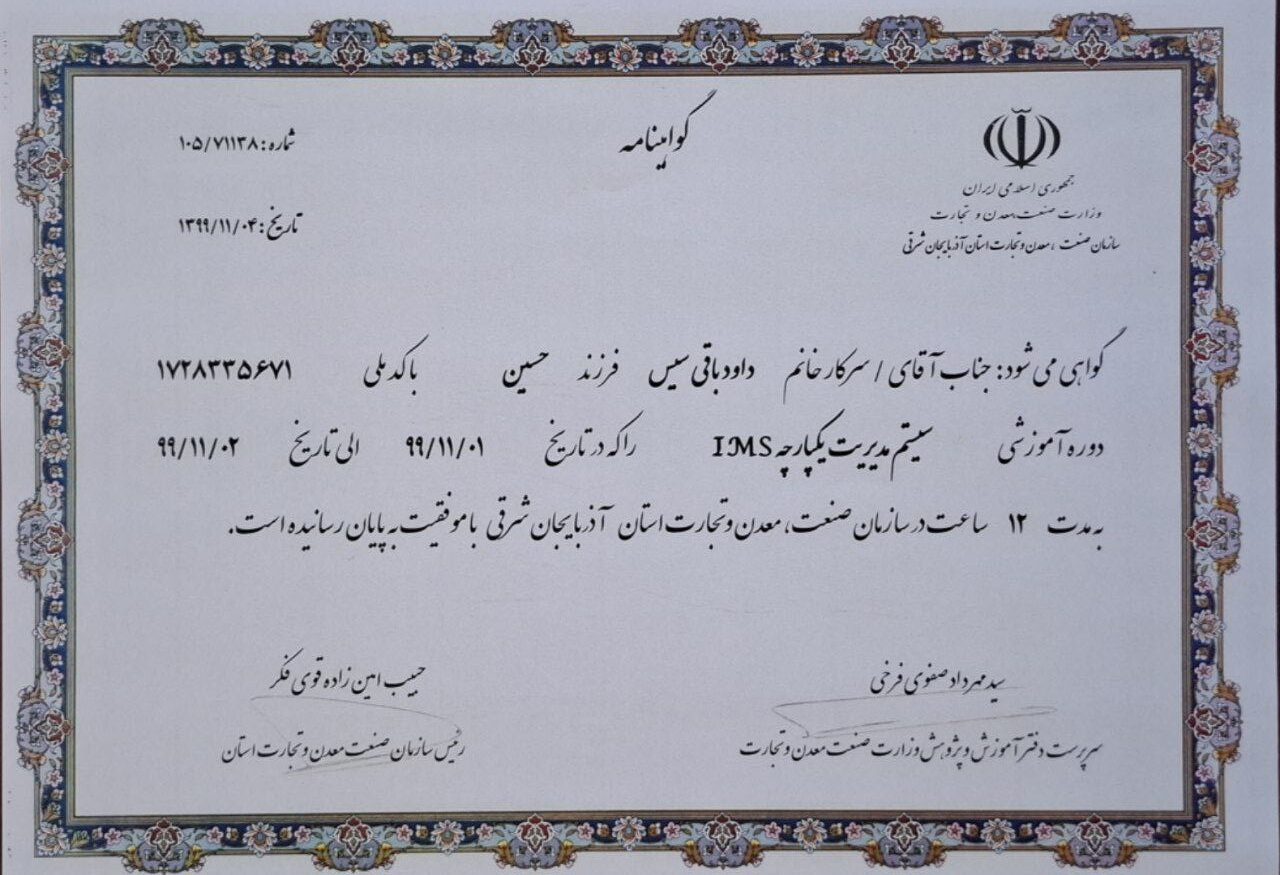 گواهینامه
جمهوری اسلامی ایران
وزارت صنعت، معدن و تجارت
سازمان صنعت ، معدن و تجارت استان آذربایجان شرقی
شماره: ۱۰۵/۷۱۱۳۸
تاریخ: ۱۳۹۹/۱۱/۰۴
گواهی می شود: جناب آقای / سرکار خانم داود باقی سیس فرزند حسین با کد ملی ۱۷۲۸۳۳۵۶۷۱
دوره آموزشی سیستم مدیریت یکپارچه IMS را که در تاریخ ۹۹/۱۱/۰۱ الی تاریخ ۹۹/۱۱/۰۲
به مدت ۱۲ ساعت در سازمان صنعت، معدن و تجارت استان آذربایجان شرقی با موفقیت به پایان رسانیده است.
سید مهرداد صفوی فرخی
سرپرست دفتر آموزش و پژوهش وزارت صنعت معدن و تجارت
حبیب امین زاده قوی فکر
رئیس سازمان صنعت معدن و تجارت استان